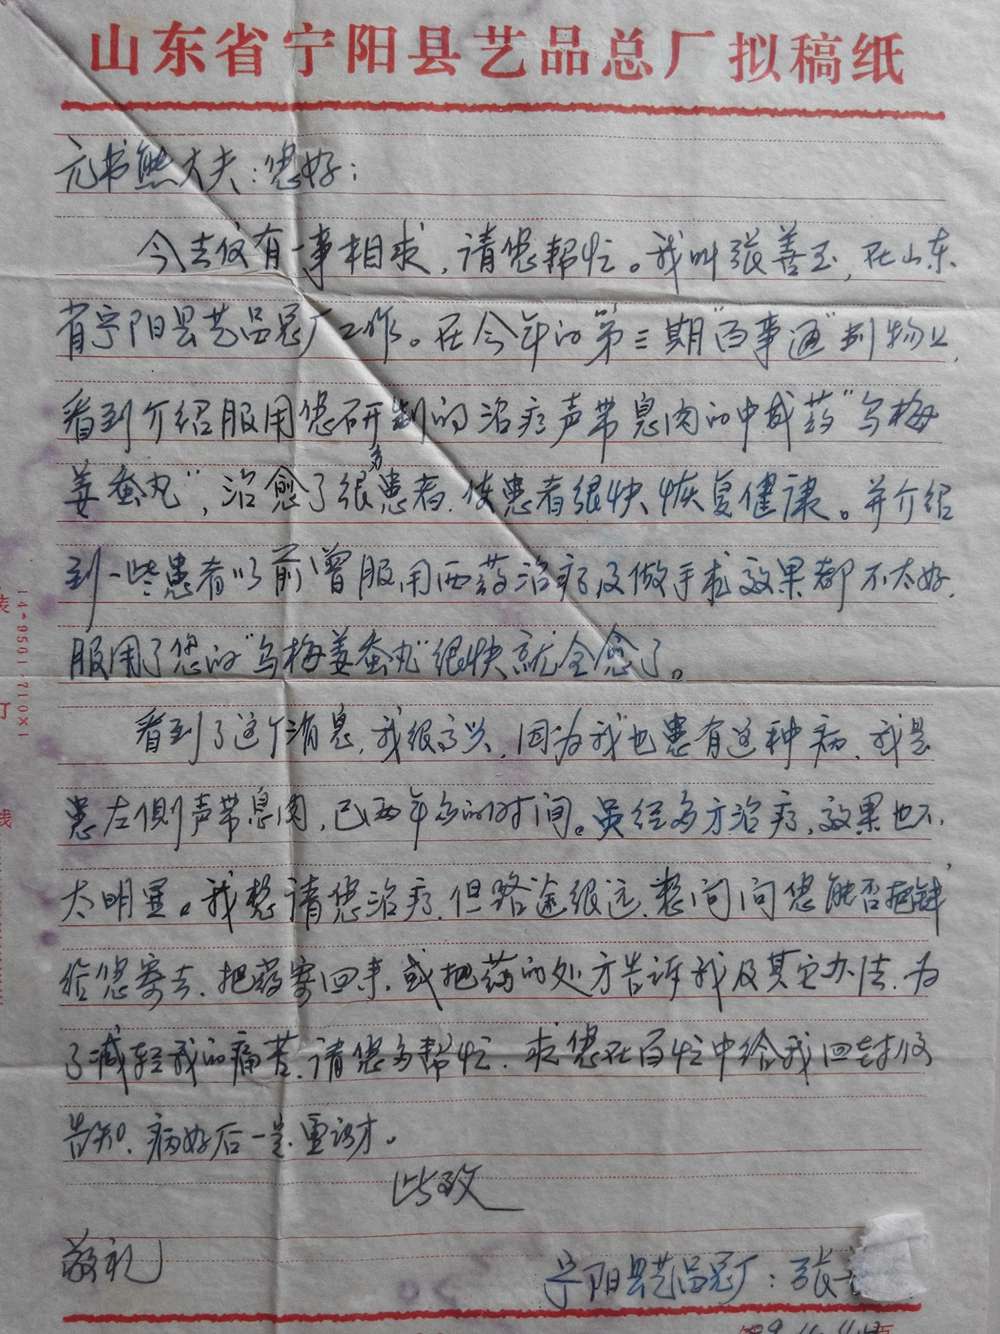 山东省宁阳县艺品总厂拟稿纸
元书熊大夫：您好：
今去仪有一事相求，请您帮忙。我叫张善玉，在山东
省宁阳县艺品总厂工作。在今年的第三期"百事通"刊物上，
看到介绍服用您研制的治疗声带息肉的中成药"乌梅
姜蚕丸"，治愈了很多患者，使患者很快恢复健康。并介绍
到一些患者以前曾服用西药治疗及做手术效果都不太好，
服用了您的"乌梅姜蚕丸"很快就全愈了。
看到了这个消息，我很高兴，因为我也患有这种病，我是
患左侧声带息肉，已两年多的时间。虽经多方治疗，效果也不
太明显。我想请您治疗，但路途很远，想问问您能否把钱
给您寄去，把药寄回来，或把药的处方告诉我及其它办法，为
了减轻我的痛苦，请您多帮忙，求您在百忙中给我回封信
告知，病好后一定重谢才。
此致
敬礼
宁阳县艺品总厂：张